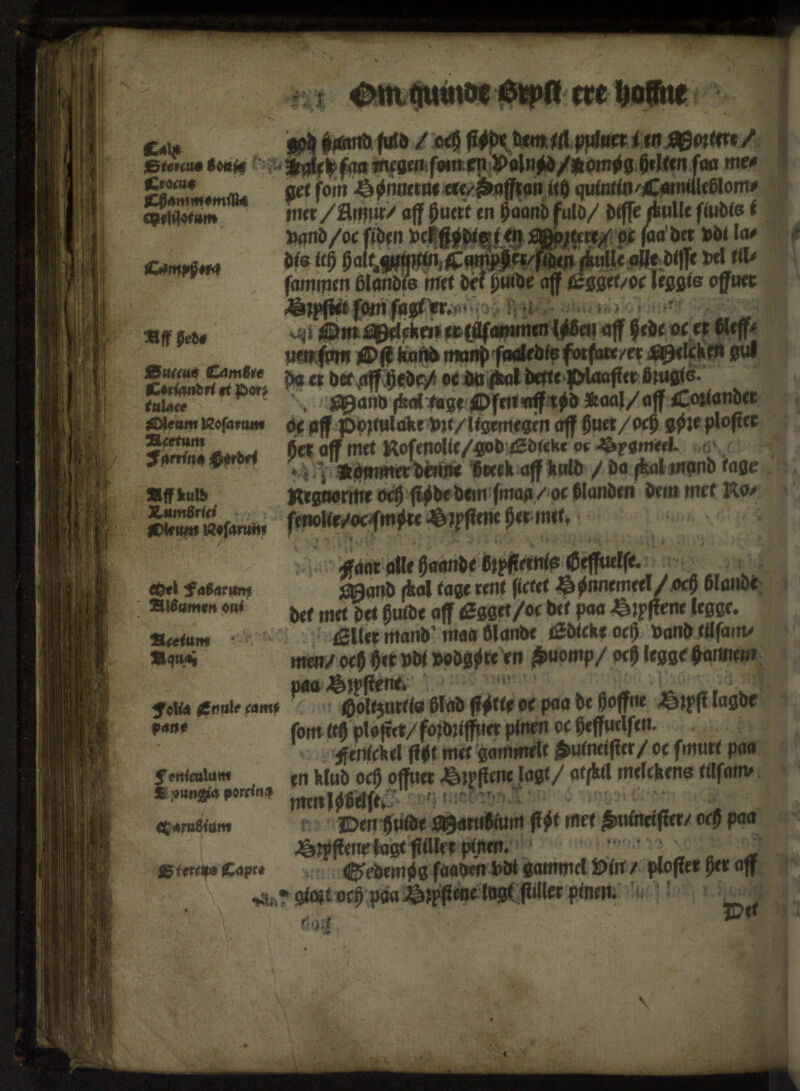 Om quinde Bryst ere hoffne
god haand fuld / och støde dem til puluer i en Mortere /
Kalck saa megen som en Valnød / Komøg heltten saa me⸗
get som Hønnerne ere / Saffran ith quintin / Camilleblom⸗
mer / Urtur / aff huert en haand fuld / disse skulle siudis i
vand / oc siden vel stødis i en Mortere / oc saa der vdi la⸗
dis ith halt quintin, Camphers / siden skulle alle disse vel til⸗
sammen blandis met det huide aff Egget / oc leggis offuer
Brystet som sagt er.
Om Melcken er tilsammen løben aff hede oc er bleff⸗
uen som Ost kand mand saaledis forfare / er Melcken gul
da er det aff hede / oc da skal dette Plaaster brugis.
Mand skal tage Osen aff rød Kaal / aff Coriander
oc aff Portulake vrt / ligemegen aff huer / och gøre ploster
her aff met Rosenolie / god Edicke oc Bygmeel.
Kommer denne breck aff kuld / da skal mand tage
Regnorme och støde dem smaa / oc blanden dem met Ro⸗
senolie / oc smøre Brystene her met.
Faar alle haande brysternis Geffuelse.
Mand skal tage rent sictet Bønnemeel / och blande
det met det huide aff Egget / oc det paa Brystene legge.
Eller mand maa blande Edicke och vand tilsam⸗
men / och her vdi vodgøre en Suomp / och legge hannem
paa Brystene.
Holtzurtis blad støtte oc paa de hoffne Bryst lagde
som ith ploster / fordriffuer pinen oc heffuelsen.
Fenickel støt met gammelt Suineister / oc smurt paa
en klud och offuer Brystene lagt / atskil melckens tilsam⸗
men løbelse.
Den huide Marubium støt met Suineister / och paa
Brystene lagt stiller pinen.
Gedemøg saaden vdi gammel Vin / ploster her aff
giort och paa Brystene lagt stiller pinen.
Det
Calx
Stercus bouis
Crocus
Chammomilla
Meliloum
Camphora
Aff hede
Succus Cambre
Coriandri et Por⸗
tulace
Oleum Rosarum
Acetum
Farrina Hordei
Aff kuld
Lumbrici
Oleum Rosarum
Mel Fabarum
Albumen oui
Acetum
Aqua
Folia Enule cam⸗
pane
Feniculum
Axungia porcina
Marubium
Stercus Capre